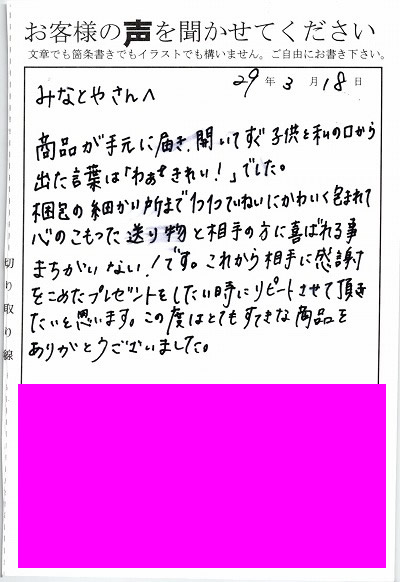 お客様の声を聞かせてください
文章でも箇条書きでもイラストでも構いません。ご自由にお書き下さい。
29年3月18日
みなとやさんへ
商品が手元に届き、開いてすぐ子供と私の口から
出た言葉は「わぁきれい！」でした。
梱包の細かい所まで1つ1つていねいにかわいく包まれて
心のこもった送り物と相手の方に喜ばれる事
まちがいない！です。これから相手に感謝
をこめたプレゼントをしたい時にリピートさせて頂き
たいと思います。この度はとてもすてきな商品を
ありがとうございました。
切り取り線